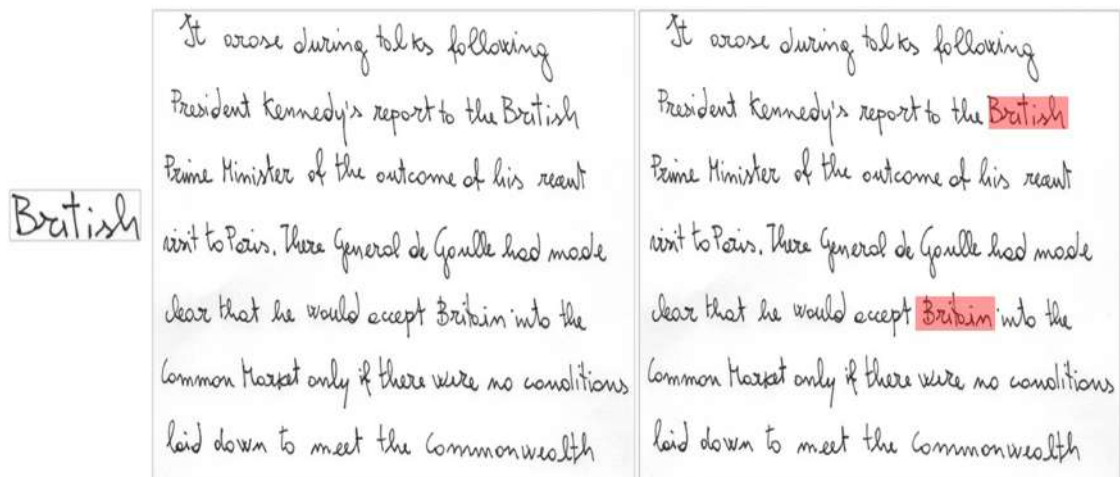 British
It arose during talks following
President Kennedy's report to the British
Prime Minister of the outcome of his recent
visit to Paris. There General de Gaulle had made
clear that he would accept Britain into the
Common Market only if there were no conditions
laid down to meet the Commonwealth
It arose during talks following
President Kennedy's report to the British
Prime Minister of the outcome of his recent
visit to Paris. There General de Gaulle had made
clear that he would accept Britain into the
Common Market only if there were no conditions
laid down to meet the Commonwealth